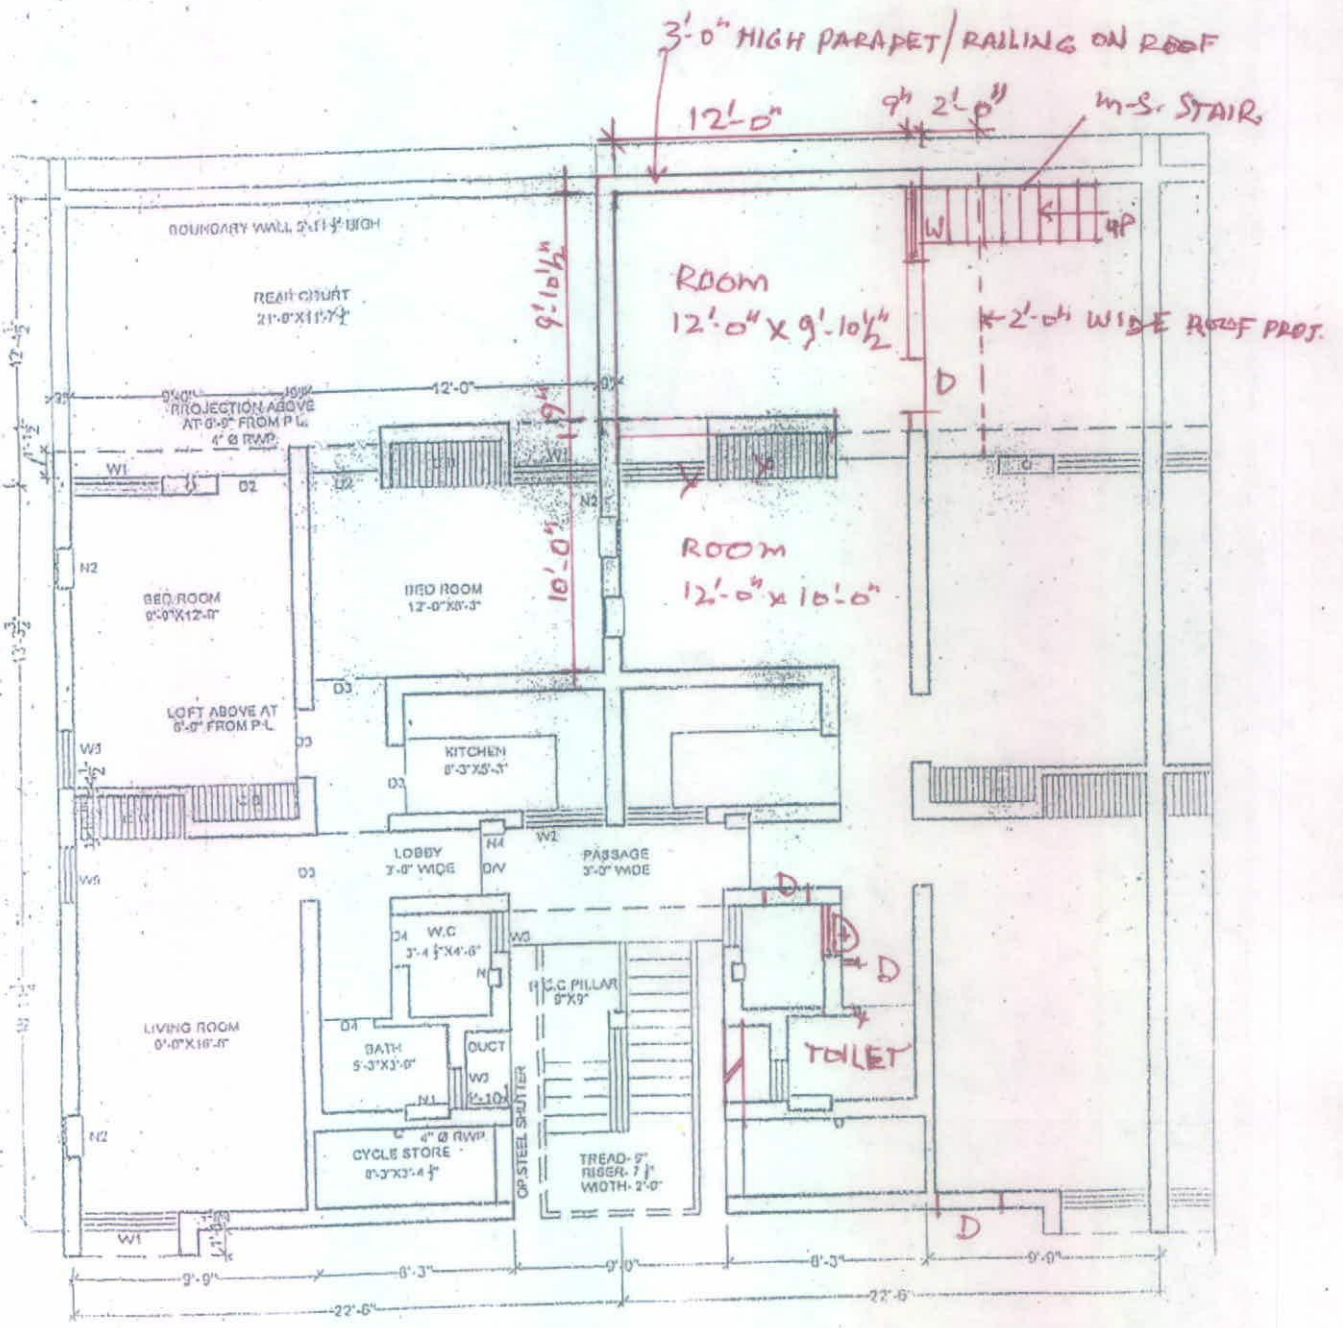 3'-0" HIGH PARAPET/RAILING ON ROOF
12'-0" 9" 2'-0"
M.S. STAIR
BOUNDARY WALL 5'-11½" HIGH
W
UP
REAR COURT
21'-9"X11'-7½"
9'-10½"
ROOM
12'-0" X 9'-10½"
2'-0" WIDE ROOF PROJ.
12'-4½"
12'-0"
9"
D
PROJECTION ABOVE
AT 6'-9" FROM P.L.
4" Ø RWP
W1
D2
W1
N2
10'-0"
ROOM
12'-0" X 10'-0"
N2
BED ROOM
9'-9"X12'-9"
BED ROOM
12'-0"X8'-3"
D3
LOFT ABOVE AT
6'-9" FROM P.L
W5
D3
KITCHEN
8'-3"X5'-3"
D3
W2
N4
LOBBY
3'-0" WIDE
D/V
PASSAGE
3'-0" WIDE
W5
D3
D
W.C
3'-4½"X4'-6"
D4
W3
D
D
R.C.C PILLAR
9"X9"
LIVING ROOM
9'-9"X16'-6"
D4
BATH
5'-3"X3'-9"
DUCT
W3
N1
TOILET
N2
4" Ø RWP
CYCLE STORE
8'-3"X3'-4½"
OP.STEEL SHUTTER
TREAD- 9"
RISER- 7½"
WIDTH- 2'-9"
W1
D
9'-9" 8'-3" 9'-0" 8'-3" 9'-9"
22'-6" 22'-6"